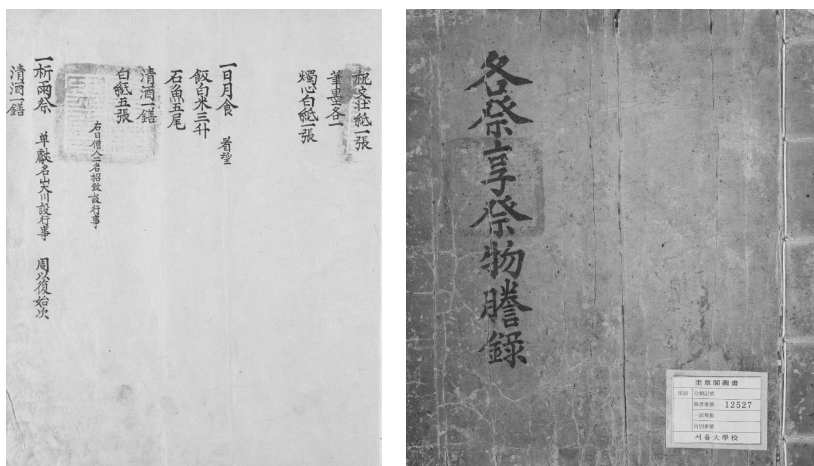 祝文壯紙一張
筆墨各一
燭心白紙一張
一日月食
飯白米三升
石魚五尾
清酒一鐥
白紙五張
右日僧人一名招致設行事
一祈雨祭 單獻名山大川設行事 周以復始次
清酒一鐥
各祭享祭物謄錄
奎章閣圖書
12527
서울大學校